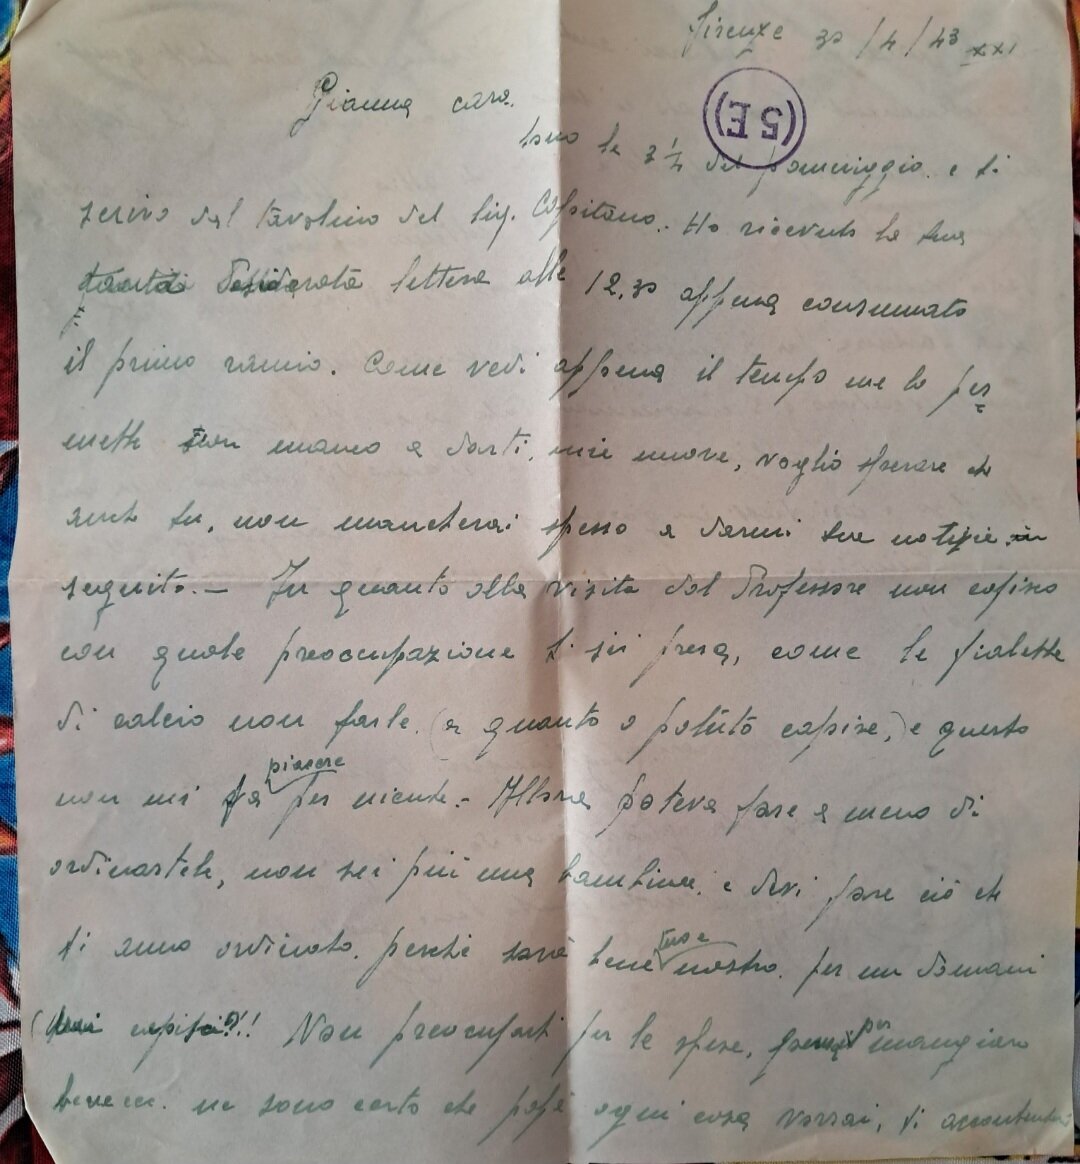 Firenze 30/4/43 XXI
(5E)
Gianna cara.
sono le 3 1/2 del pomeriggio. e ti
scrivo dal tavolino del Sig. Capitano. Ho ricevuto la tua
tanto desiderata lettera alle 12,30 appena consumato
il primo rancio. Come vedi appena il tempo me lo per
mette non manco a darti, mie nuove, voglio sperare che
anche tu, non mancherai spesso a darmi tue notizie in
seguito. – In quanto alla visita dal Professore non capisco
con quale preoccupazione ti sei presa, come le fialette
di calcio non farle. (a quanto o potuto capire,) e questo
non mi fa piacere per niente. – Allora poteva fare a meno di
ordinartele, non sei più una bambina, e devi fare ciò che
ti anno ordinato. perché sarà bene tuo e nostro. per un domani
( capisci?!! Non preoccuparti per le spese, per mangiare
bene ecc. ne sono certo che papà ogni cosa vorrai, ti accontenterà